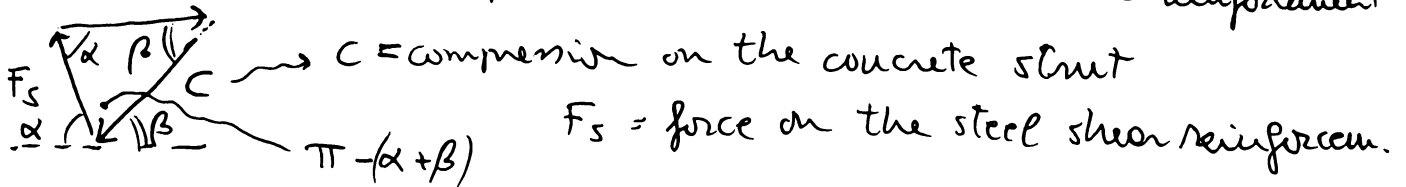 reinforcement
α β
Fs C C = compression on the concrete strut
α β Fs = force on the steel shear reinforcem.
π-(α+β)